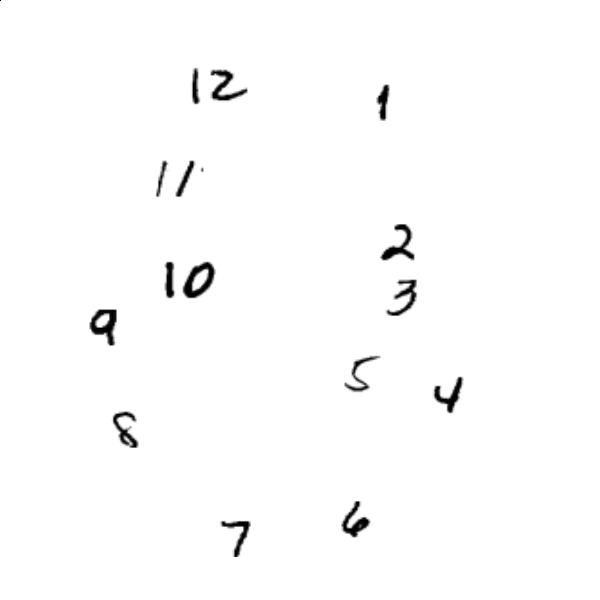 12
1
11
2
10
3
9
5
4
8
6
7